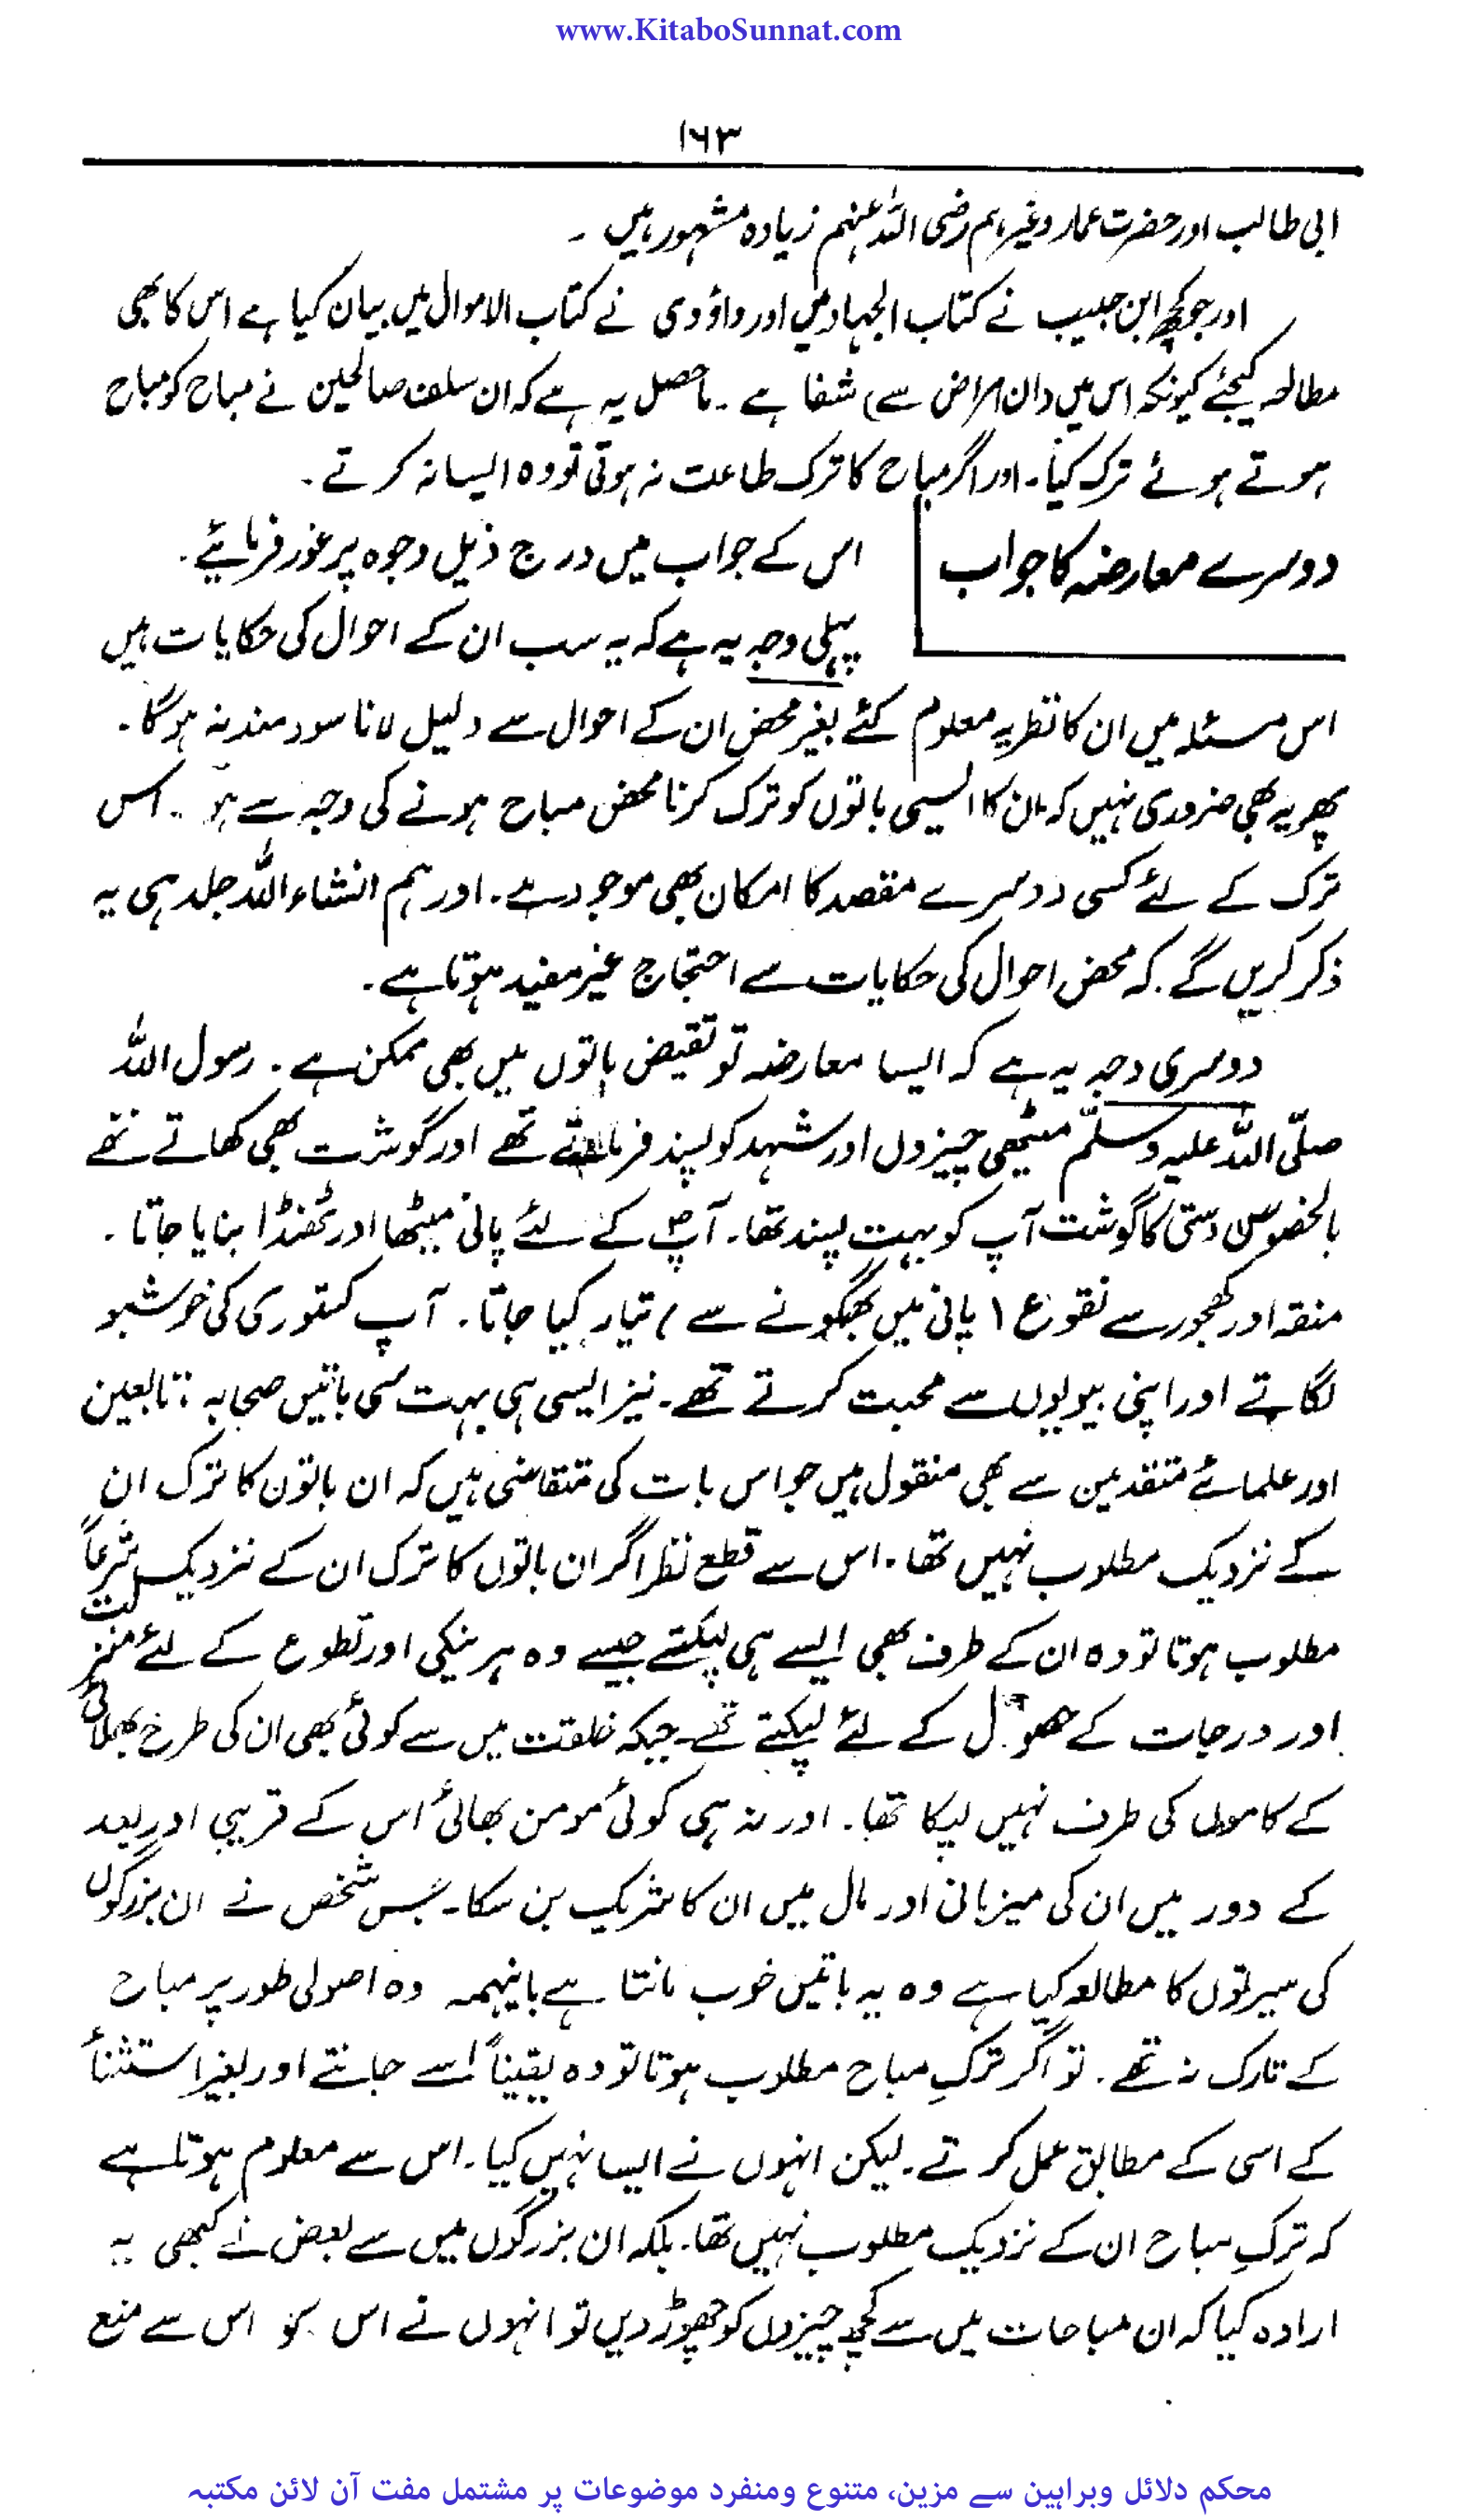 www.KitaboSunnat.com
۱۶۳
ابی طالب اور حضرت عمار وغیرہم رضی اللہ عنہم زیادہ مشہور ہیں ۔
اور جو کچھ ابن حبیب نے کتاب الجہاد میں اور داؤدی نے کتاب الاموال میں بیان کیا ہے اس کا بھی
مطالعہ کیجئے کیونکہ اس میں (ان امراض سے) شفا ہے ۔ ماحصل یہ ہے کہ ان سلف صالحین نے مباح کو مباح
ہوتے ہوئے ترک کیا۔ اور اگر مباح کا ترک طاعت نہ ہوتی تو وہ ایسا نہ کرتے ۔
دوسرے معارضہ کا جواب
اس کے جواب میں درج ذیل وجوہ پر غور فرمایئے ۔
پہلی وجہ یہ ہے کہ یہ سب ان کے احوال کی حکایات ہیں
اس مسئلہ میں ان کا نظریہ معلوم کئے بغیر محض ان کے احوال سے دلیل لانا سود مند نہ ہوگا ۔
پھر یہ بھی ضروری نہیں کہ ان کا ایسی باتوں کو ترک کرنا محض مباح ہونے کی وجہ سے ہو ۔ اس
ترک کے لئے کسی دوسرے مقصد کا امکان بھی موجود ہے ۔ اور ہم انشاء اللہ جلد ہی یہ
ذکر کریں گے کہ محض احوال کی حکایات سے احتجاج غیر مفید ہوتا ہے ۔
دوسری وجہ یہ ہے کہ ایسا معارضہ تو نقیض باتوں میں بھی ممکن ہے ۔ رسول اللہ
صلّی اللہ علیہ وسلّم میٹھی چیزوں اور شہد کو پسند فرماتے تھے اور گوشت بھی کھاتے تھے
بالخصوص دستی کا گوشت آپ کو بہت پسند تھا۔ آپؐ کے لئے پانی میٹھا اور ٹھنڈا بنایا جاتا ۔
منقہ اور کھجور سے نقوع ( پانی میں بھگونے سے ) تیار کیا جاتا ۔ آپ کستوری کی خوشبو
لگاتے اور اپنی بیویوں سے محبت کرتے تھے ۔ نیز ایسی ہی بہت سی باتیں صحابہ ، تابعین
اور علمائے متقدمین سے بھی منقول ہیں جو اس بات کی متقاضی ہیں کہ ان باتوں کا ترک ان
کے نزدیک مطلوب نہیں تھا ۔ اس سے قطع نظر اگر ان باتوں کا ترک ان کے نزدیک شرعاً
مطلوب ہوتا تو وہ ان کے طرف بھی ایسے ہی لپکتے جیسے وہ ہر نیکی اور تطوع کے لئے منزلت
اور درجات کے حصول کے لئے لپکتے تھے۔ جبکہ خلقت میں سے کوئی بھی ان کی طرح بھلائی
کے کاموں کی طرف نہیں لپکا تھا۔ اور نہ ہی کوئی مومن بھائی اس کے قریبی اور بعد
کے دور میں ان کی میزبانی اور مال میں ان کا شریک بن سکا۔ جس شخص نے ان بزرگوں
کی سیرتوں کا مطالعہ کیا ہے وہ یہ باتیں خوب مانتا ہے باینہمہ وہ اصولی طور پر مباح
کے تارک نہ تھے ۔ تو اگر ترکِ مباح مطلوب ہوتا تو وہ یقیناً اسے جانتے اور بغیر استثنأ
کے اسی کے مطابق عمل کرتے ۔ لیکن انہوں نے ایسا نہیں کیا ۔ اس سے معلوم ہوتا ہے
کہ ترکِ مباح ان کے نزدیک مطلوب نہیں تھا ۔ بلکہ ان بزرگوں میں سے بعض نے کبھی یہ
ارادہ کیا کہ ان مباحات میں سے کچھ چیزوں کو چھوڑ دیں تو انہوں نے اس کو اس سے منع
محکم دلائل وبراہین سے مزین، متنوع ومنفرد موضوعات پر مشتمل مفت آن لائن مکتبہ